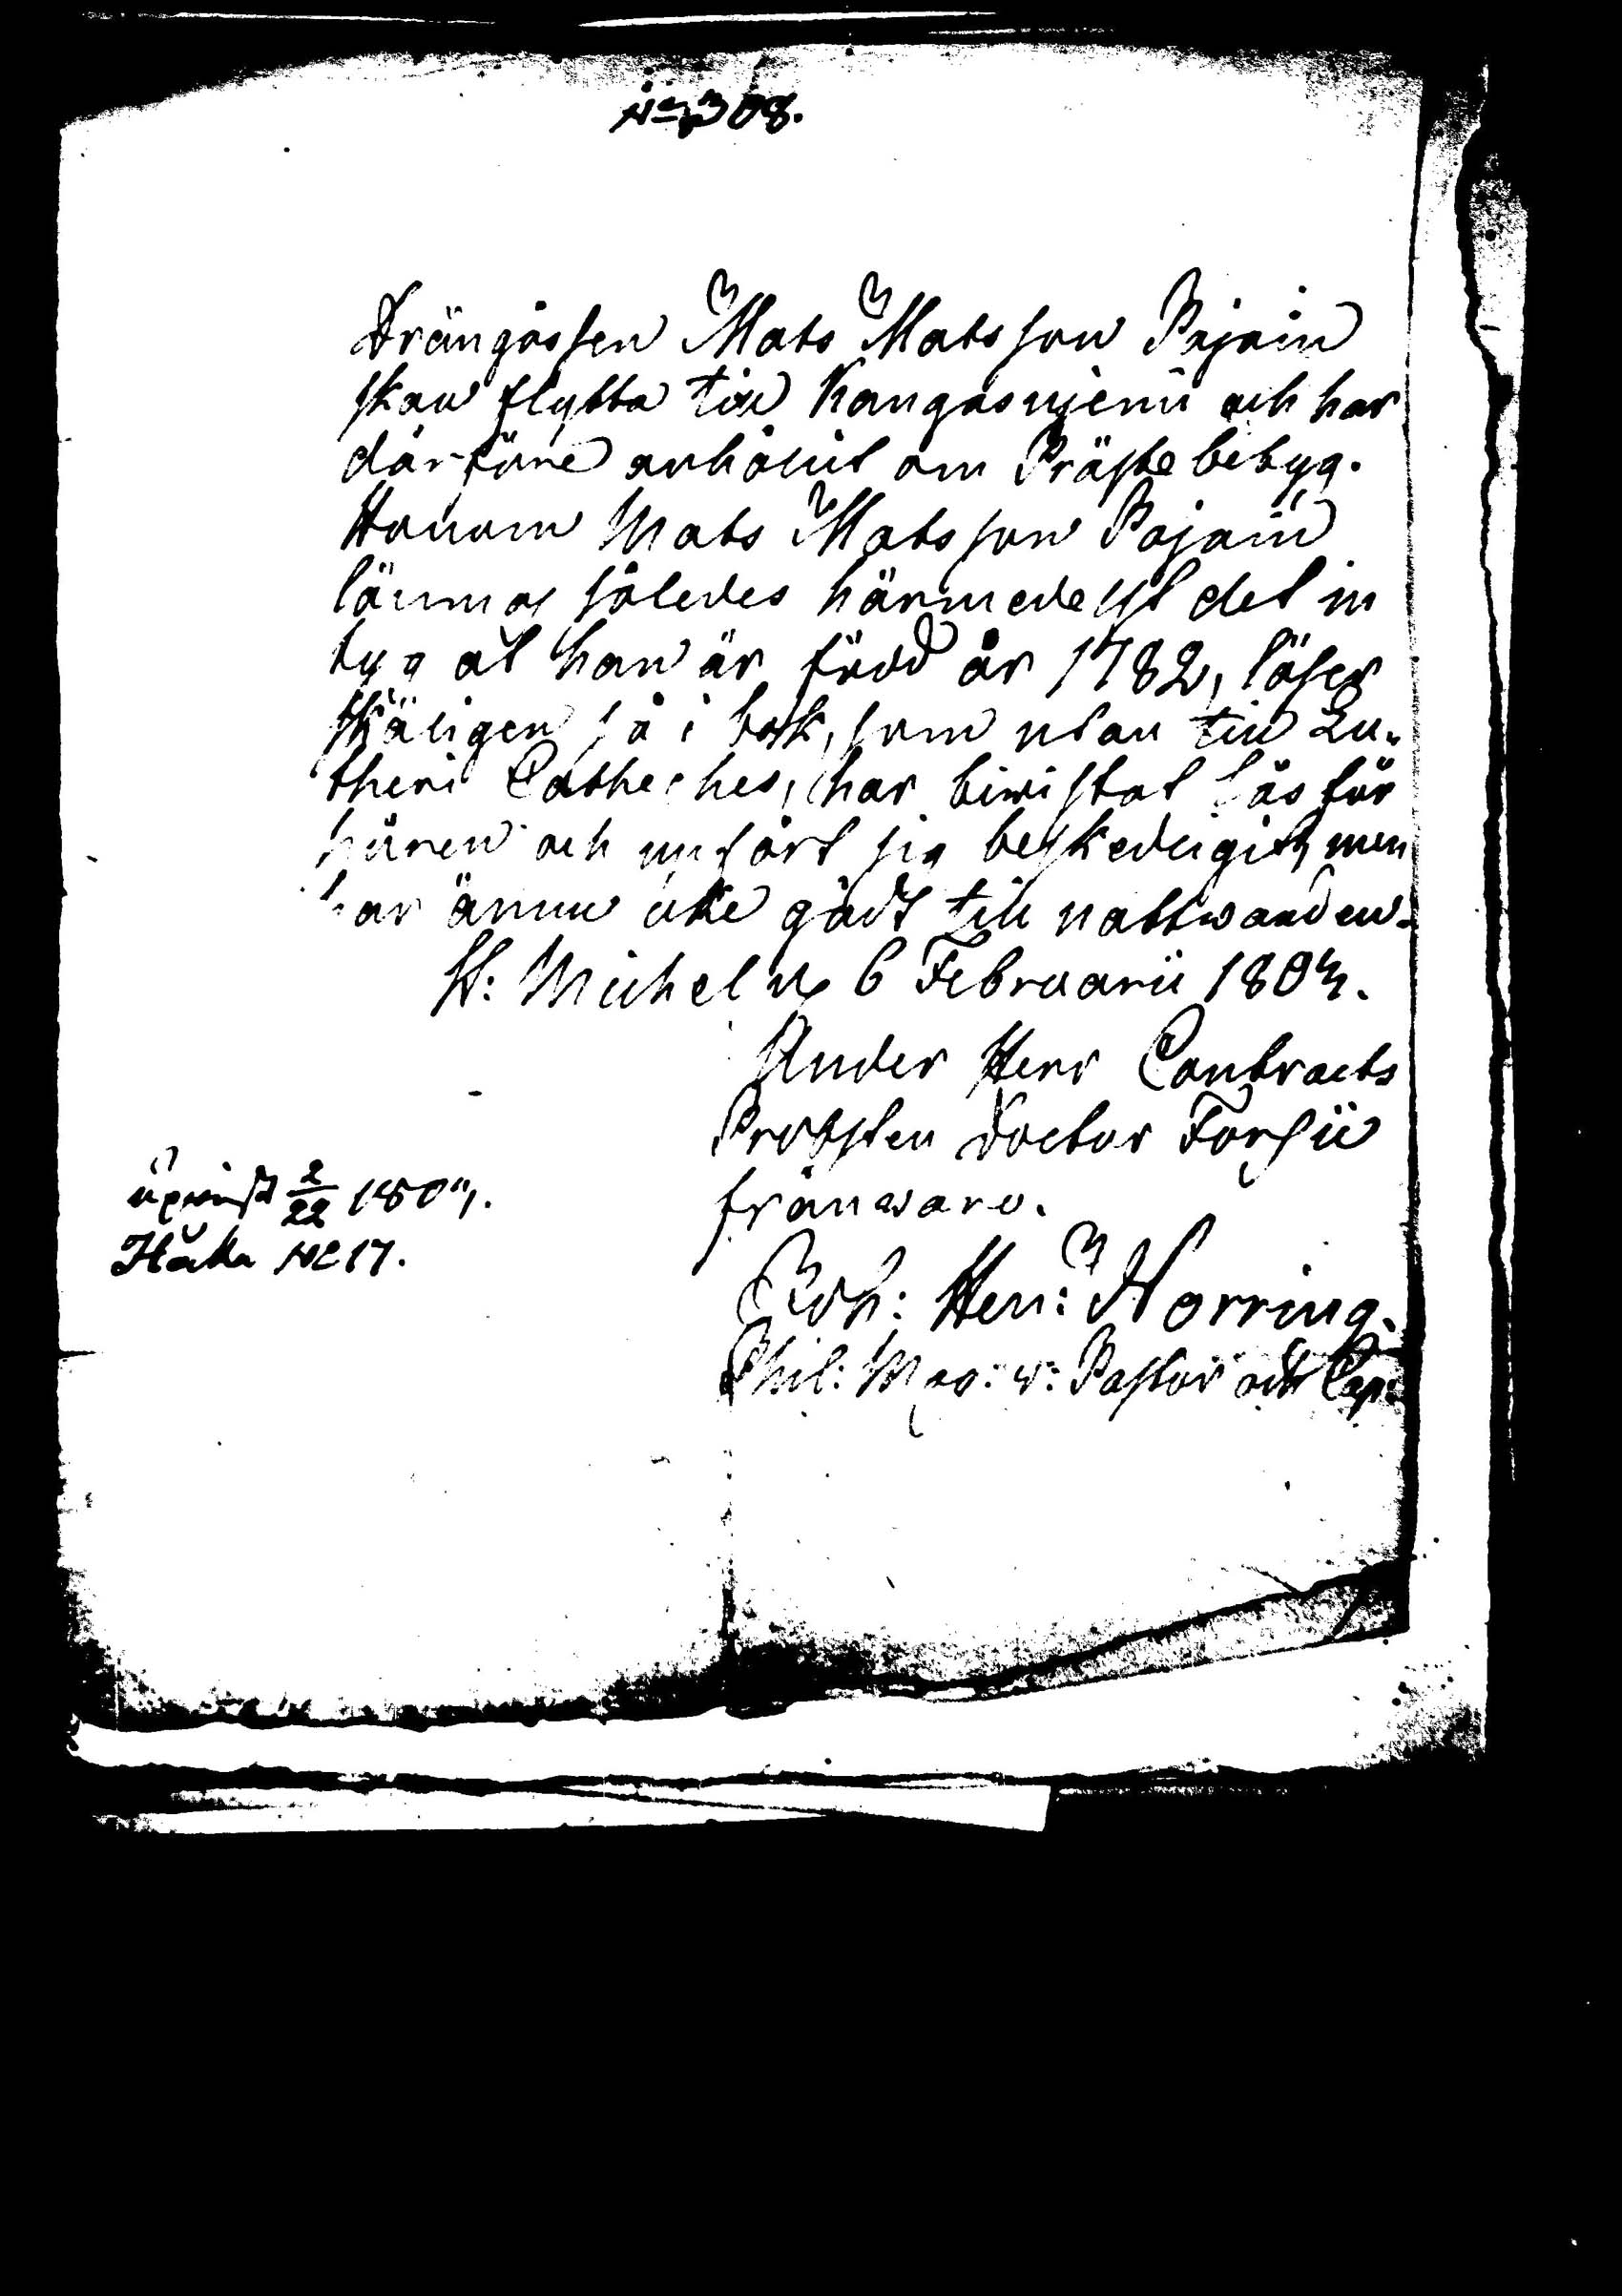 No 308.
Drängåssen Mats Matsson Pajain
skall flytta till Kangasnjemi och har
därföre anhållit om Prästebetyg.
Honom Mats Matsson Pajain
lämnas således härmedelst det in
tyg at han är född år 1782, läser
skäligen så i bok, som utan till Lu-
theri Catheches, har biwistat Läsför
hören och upfört sig beskedligit, men
har ännu icke gådt till nattwarden.
St: Michel d. 6 Februarii 1804.
Under Herr Contracts
Probsten Doctor Forsii
frånwaro.
Joh: Hen: Horring.
Phil: Mag: v: Pastor och Cap:
upwist 2/22 1804.
Håcka No 17.